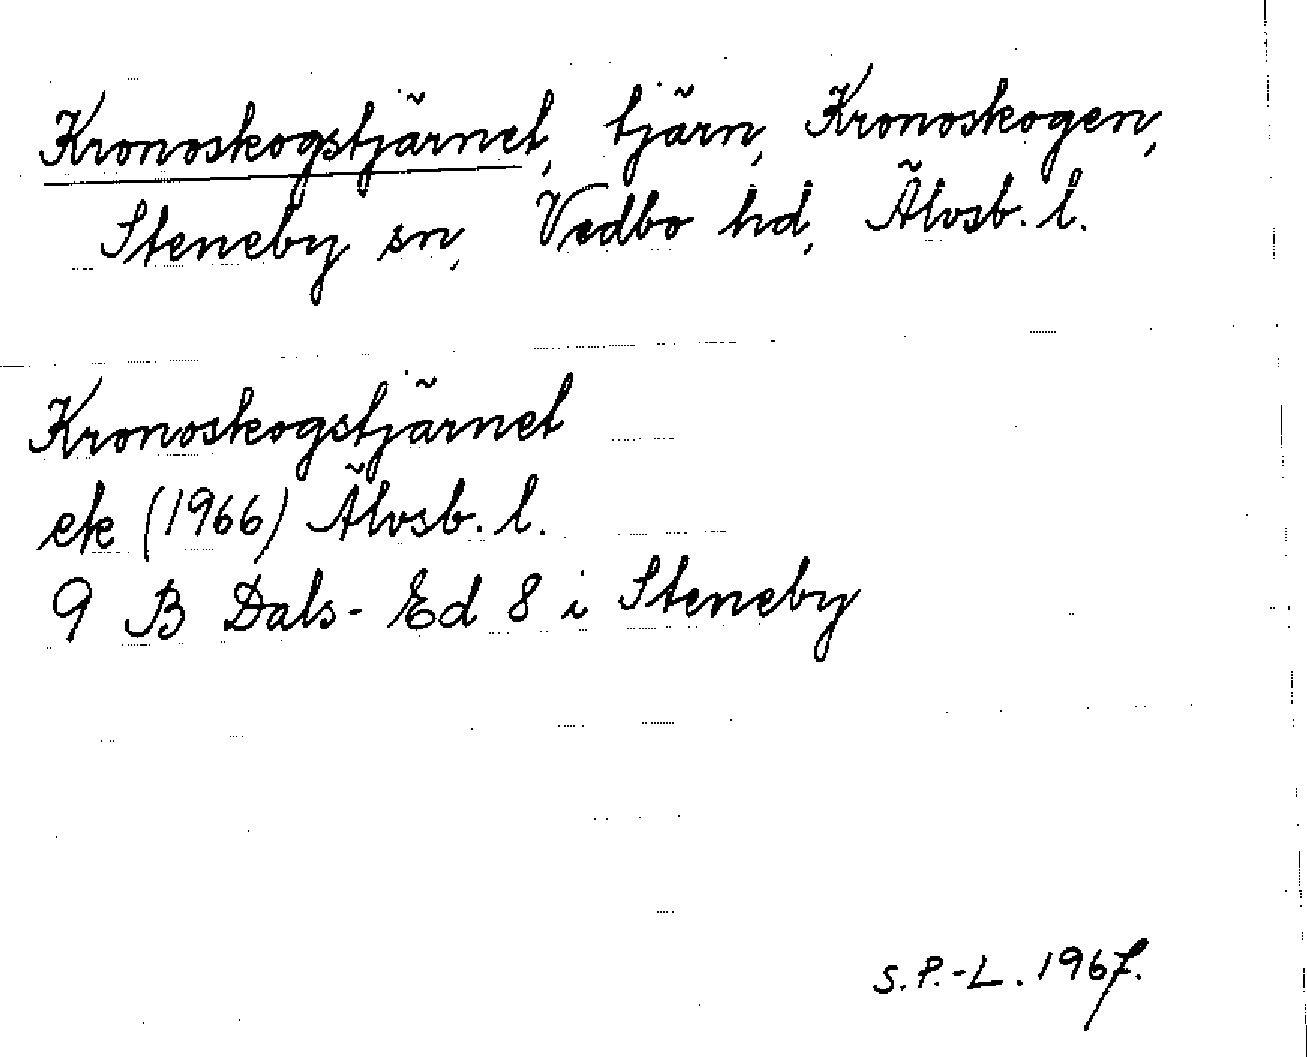 Kronoskogstjärnet, tjärn, Kronoskogen,
Steneby sn, Vedbo hd, Älvsb. l.
Kronoskogstjärnet
ek (1966) Älvsb. l.
9 B Dals-Ed 8 i Steneby
S.P.-L. 1967.